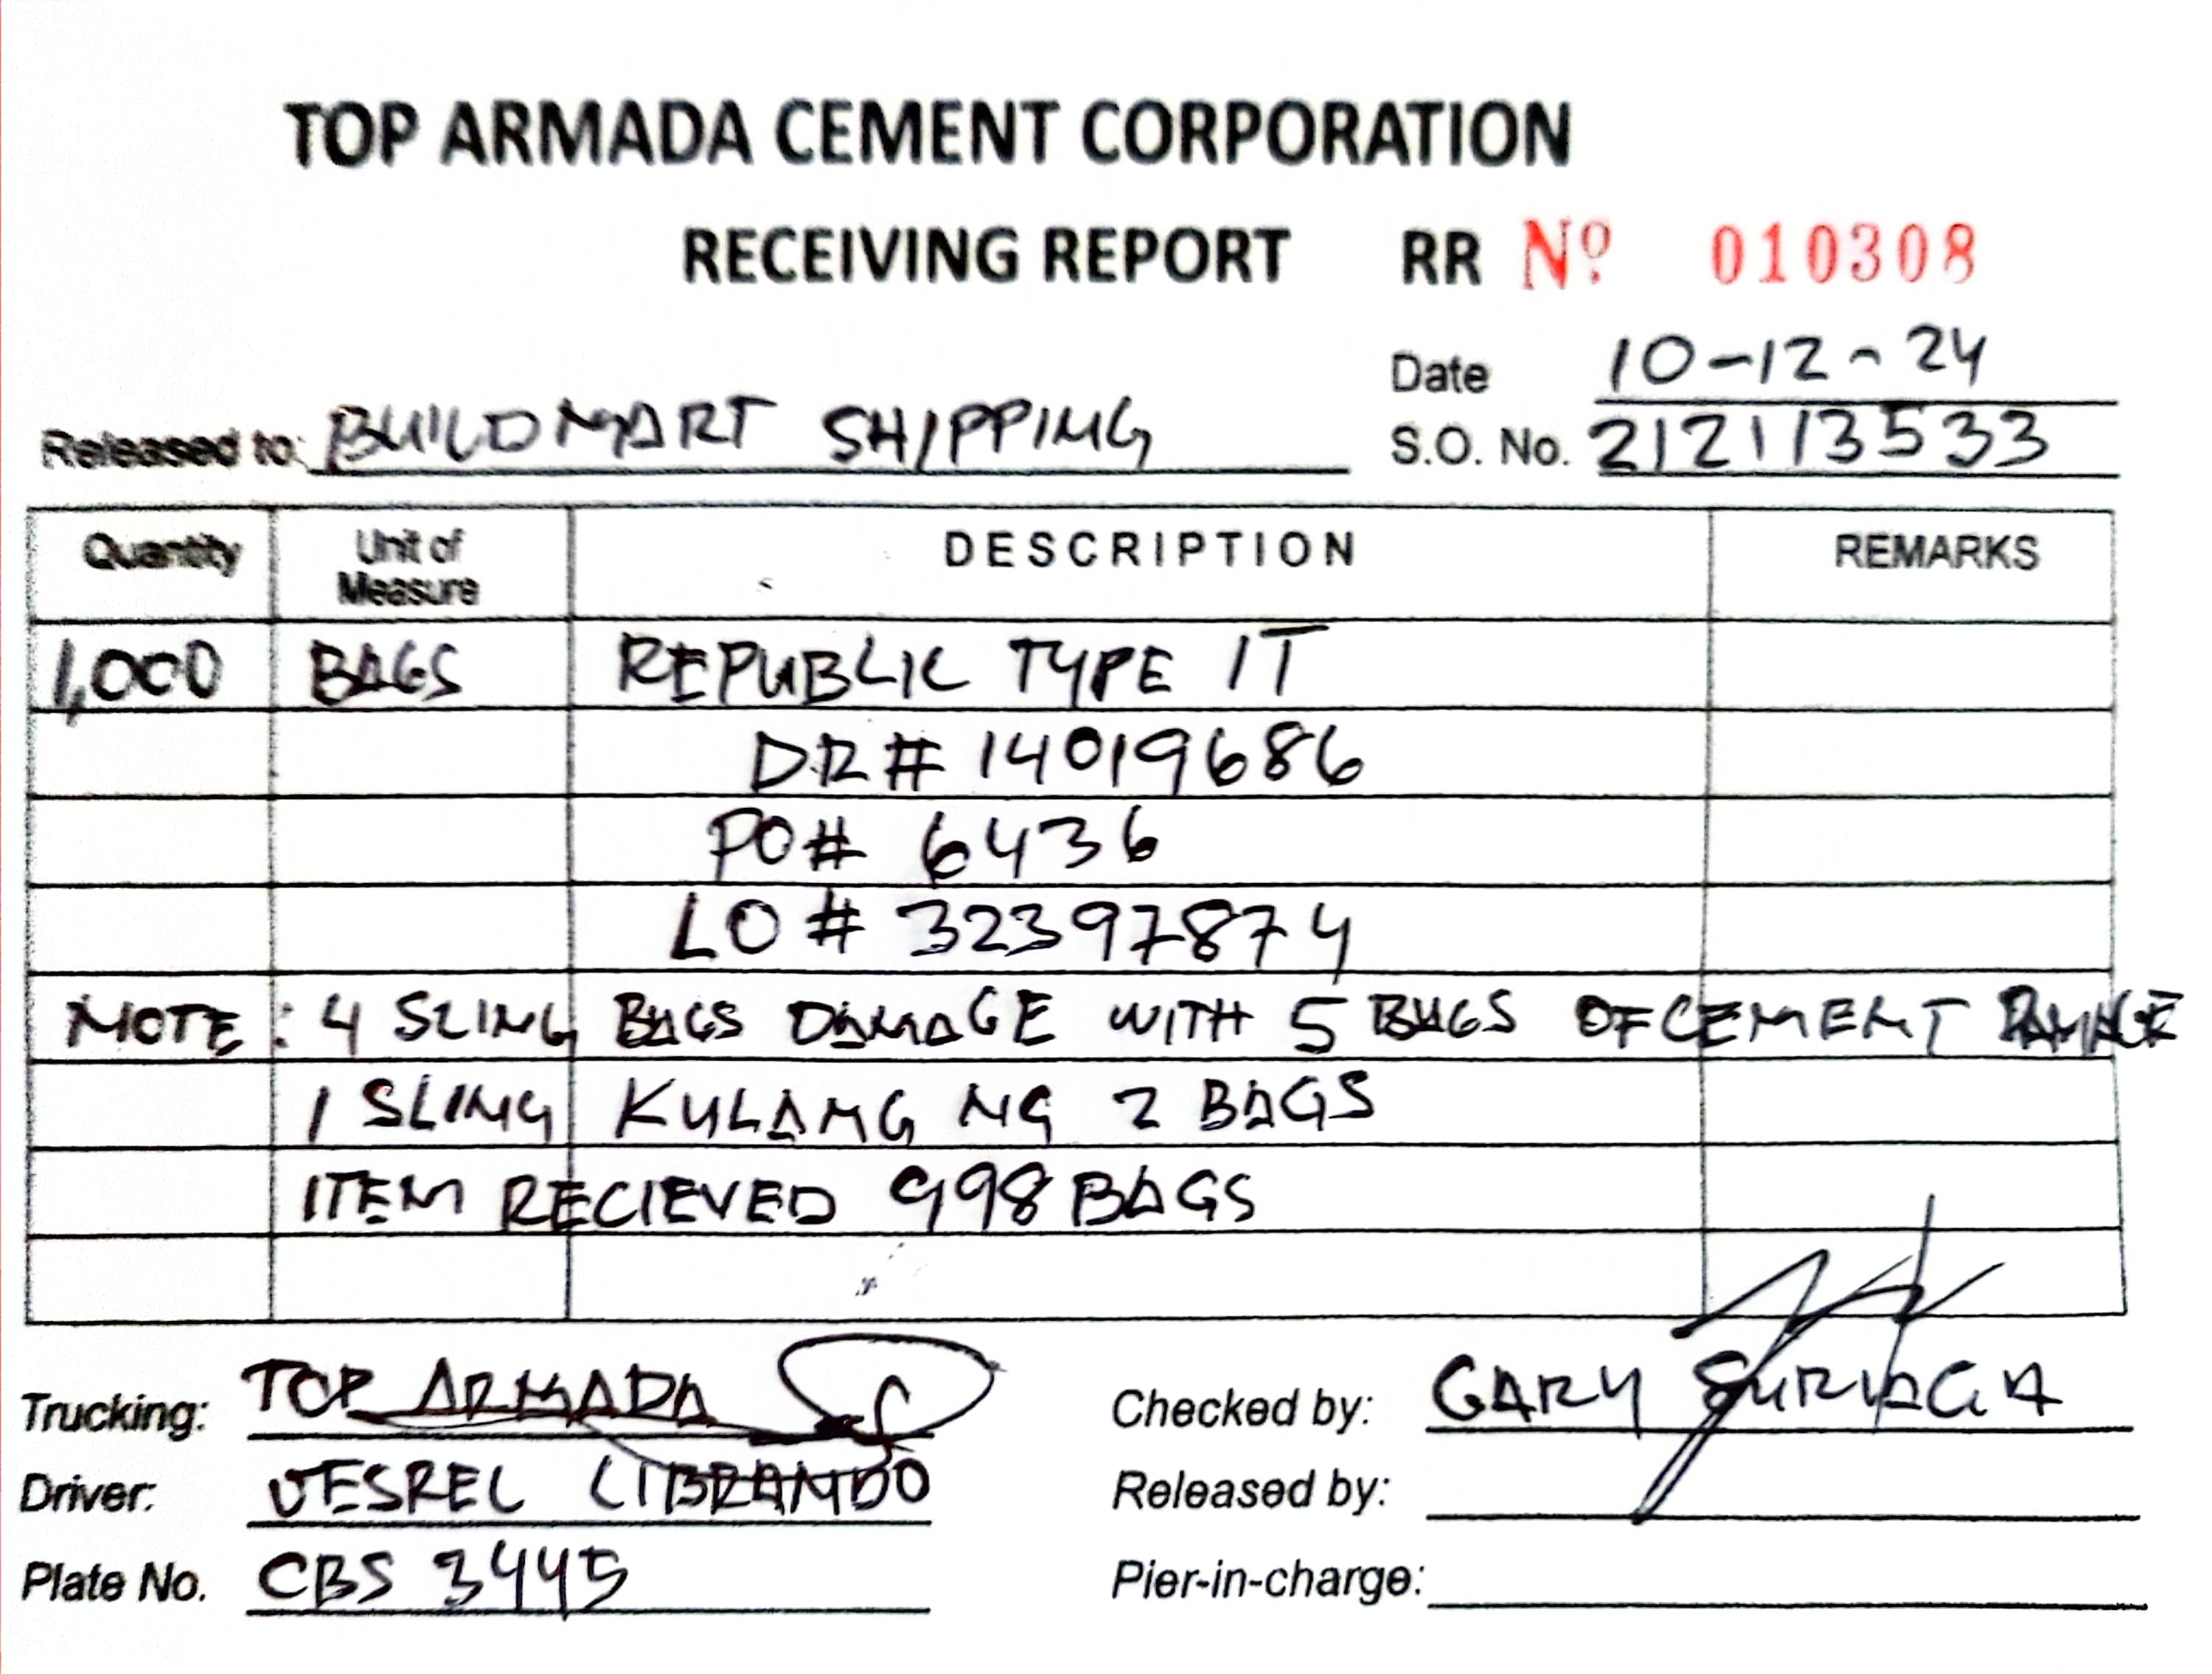 TOP ARMADA CEMENT CORPORATION
RECEIVING REPORT RR Nº 010308
Date 10-12-24
Released to: BUILDMART SHIPPING S.O. No. 212113533
Quantity Unit of Measure DESCRIPTION REMARKS
1,000 BAGS REPUBLIC TYPE 1T
DR# 14019686
PO# 6436
LO # 32397874
NOTE: 4 SLING BAGS DAMAGE WITH 5 BAGS OF CEMENT DAMAGE
1 SLING KULANG NG 2 BAGS
ITEM RECIEVED 998 BAGS
Trucking: TOP ARMADA Checked by: GARY SURIAGA
Driver: JESREL LIBRANDO Released by:
Plate No. CBS 3445 Pier-in-charge: